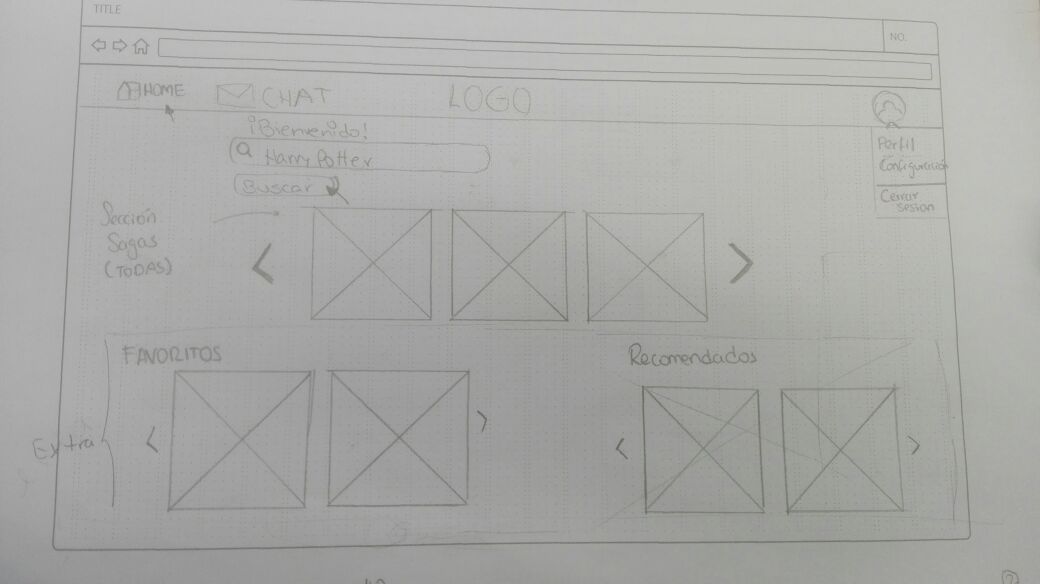 TITLE
NO.
HOME
CHAT
LOGO
¡Bienvenido!
Harry Potter
Buscar
Perfil
Configuración
Cerrar
sesion
Sección
Sagas
(TODAS)
FAVORITOS
Recomendados
Extra